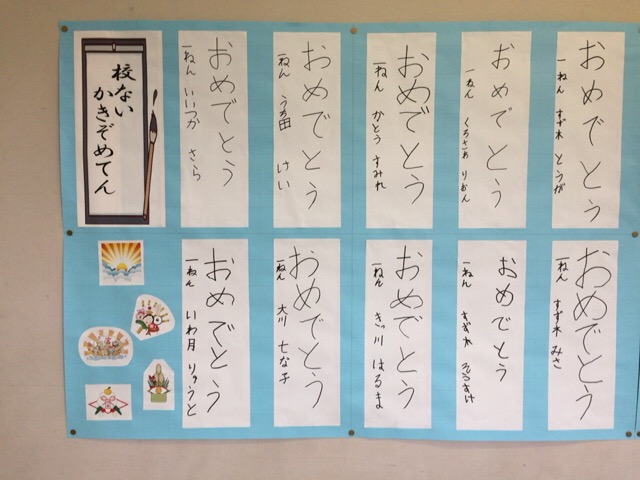 おめでとう
一ねん すず木 とうが
おめでとう
一ねん くろさわ りおん
おめでとう
一ねん かとう すみれ
おめでとう
一ねん けい
おめでとう
一ねん いいづか さら
校ない
かきぞめてん
おめでとう
一ねん すず木 みさ
おめでとう
一ねん
おめでとう
一ねん きっ川 はるま
おめでとう
一ねん 大川 七な子
おめでとう
一ねん いわ月 りゅうと